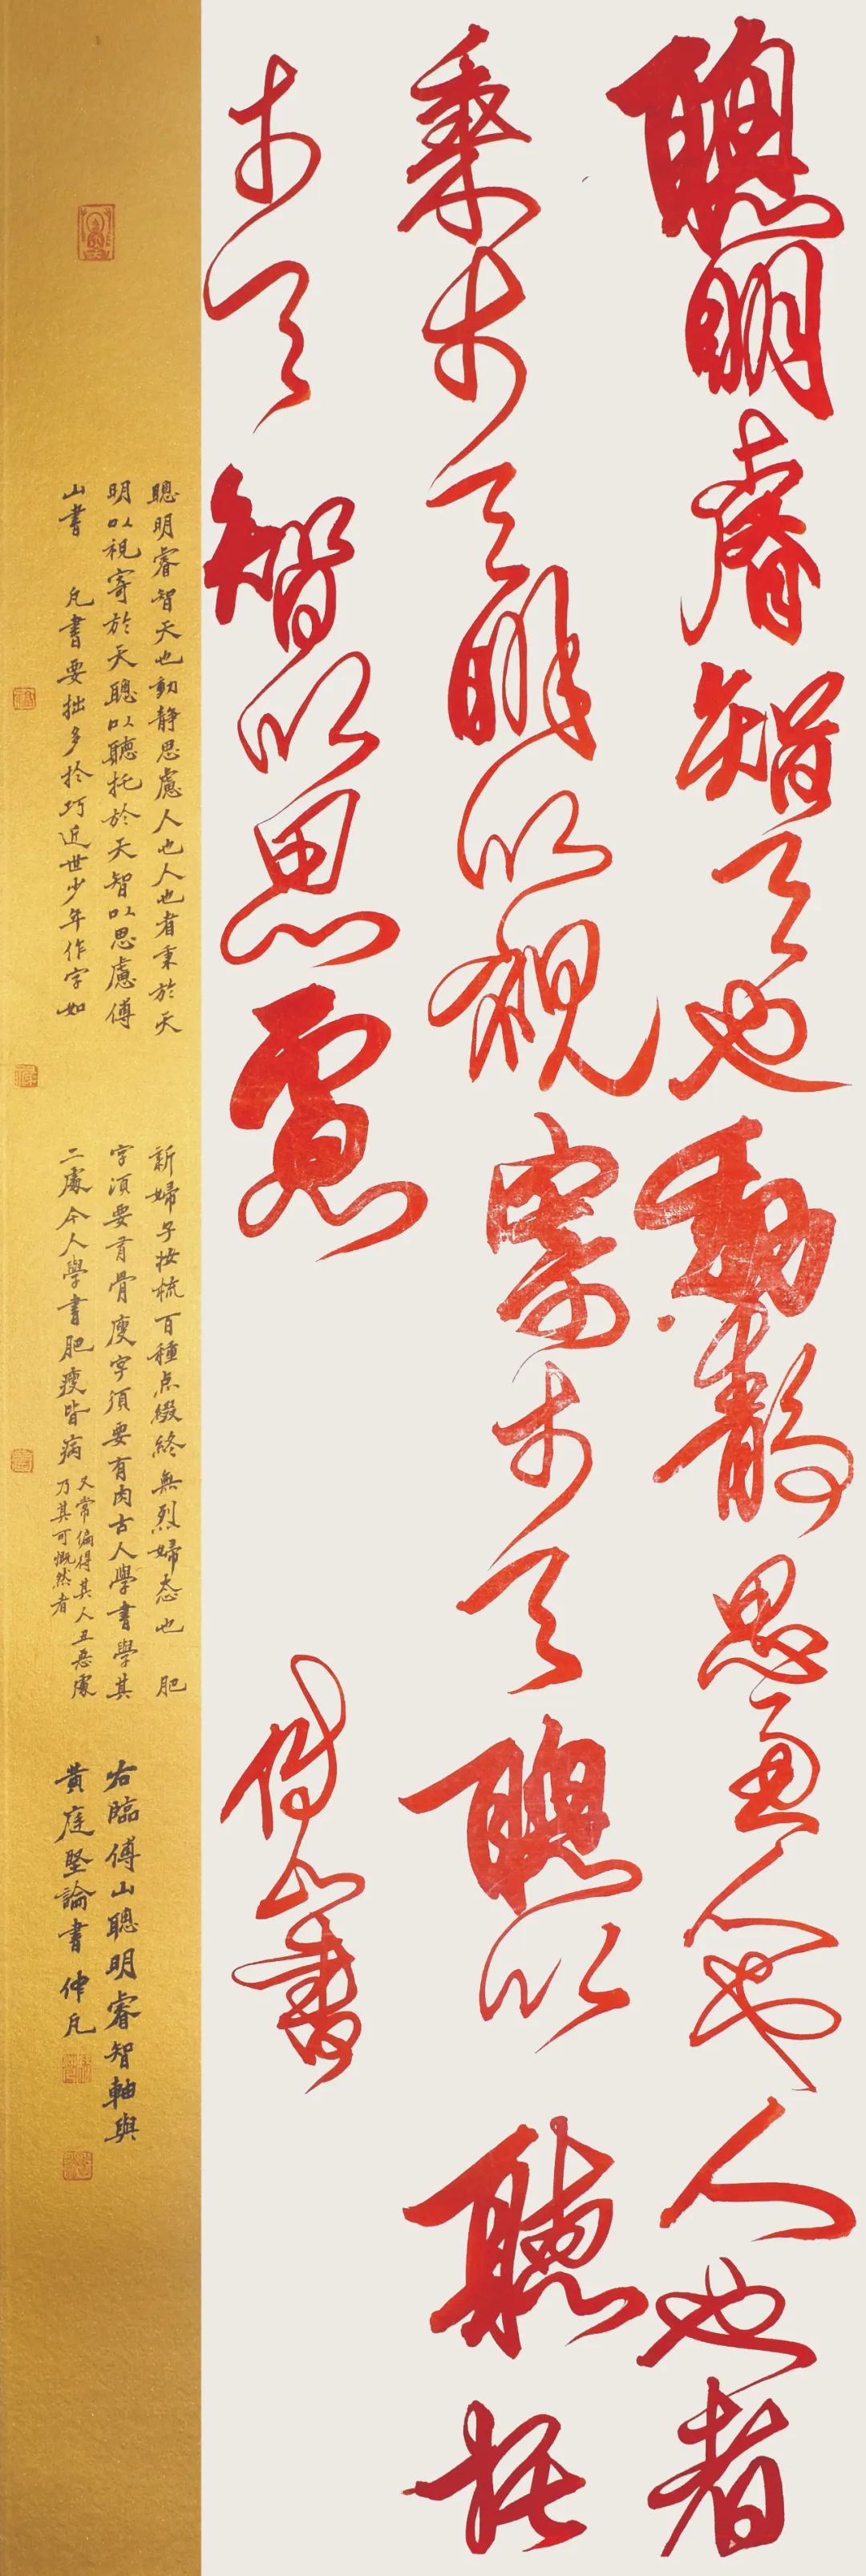 聰明睿智天也動靜思慮人也人也者
秉於天明以視寄於天聰以聽托
於天智以思慮
傅山書
聰明睿智天也動靜思慮人也人也者秉於天
明以視寄於天聰以聽托於天智以思慮傅
山書 凡書要拙多於巧近世少年作字如
新婦子妝梳百種点綴終無烈婦态也 肥
字須要有骨瘦字須要有肉古人學書學其
二處今人學書肥瘦皆病
又常偏得其人丑惡處
乃其可慨然者
右臨傅山聰明睿智軸與
黃庭堅論書 仲凡